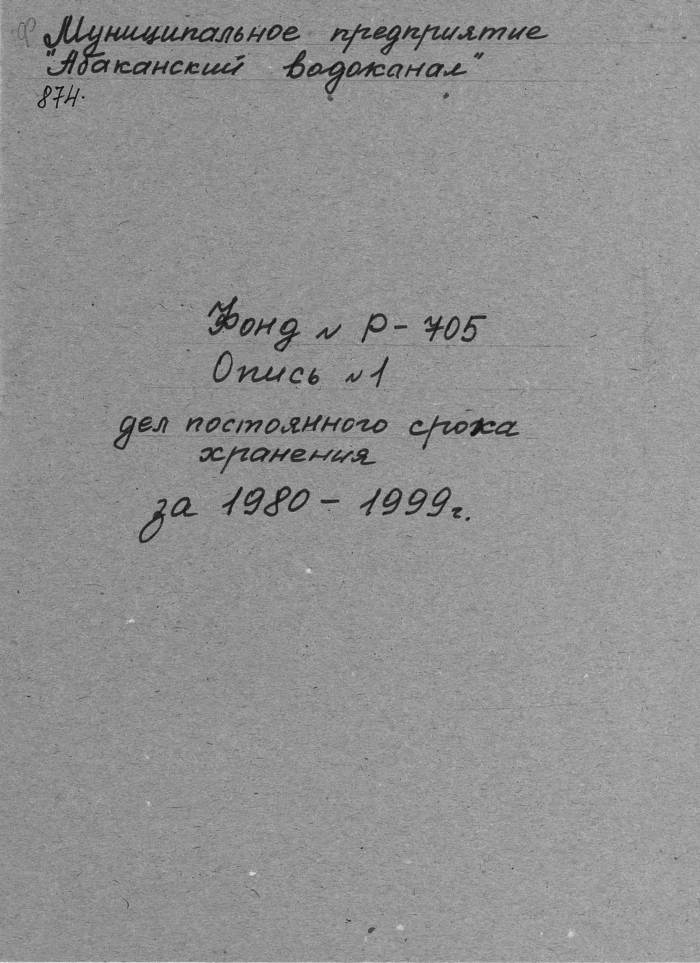 Муниципальное предприятие
"Абаканский водоканал"
874.
Фонд № Р-705
Опись №1
дел постоянного срока
хранения
за 1980-1999г.